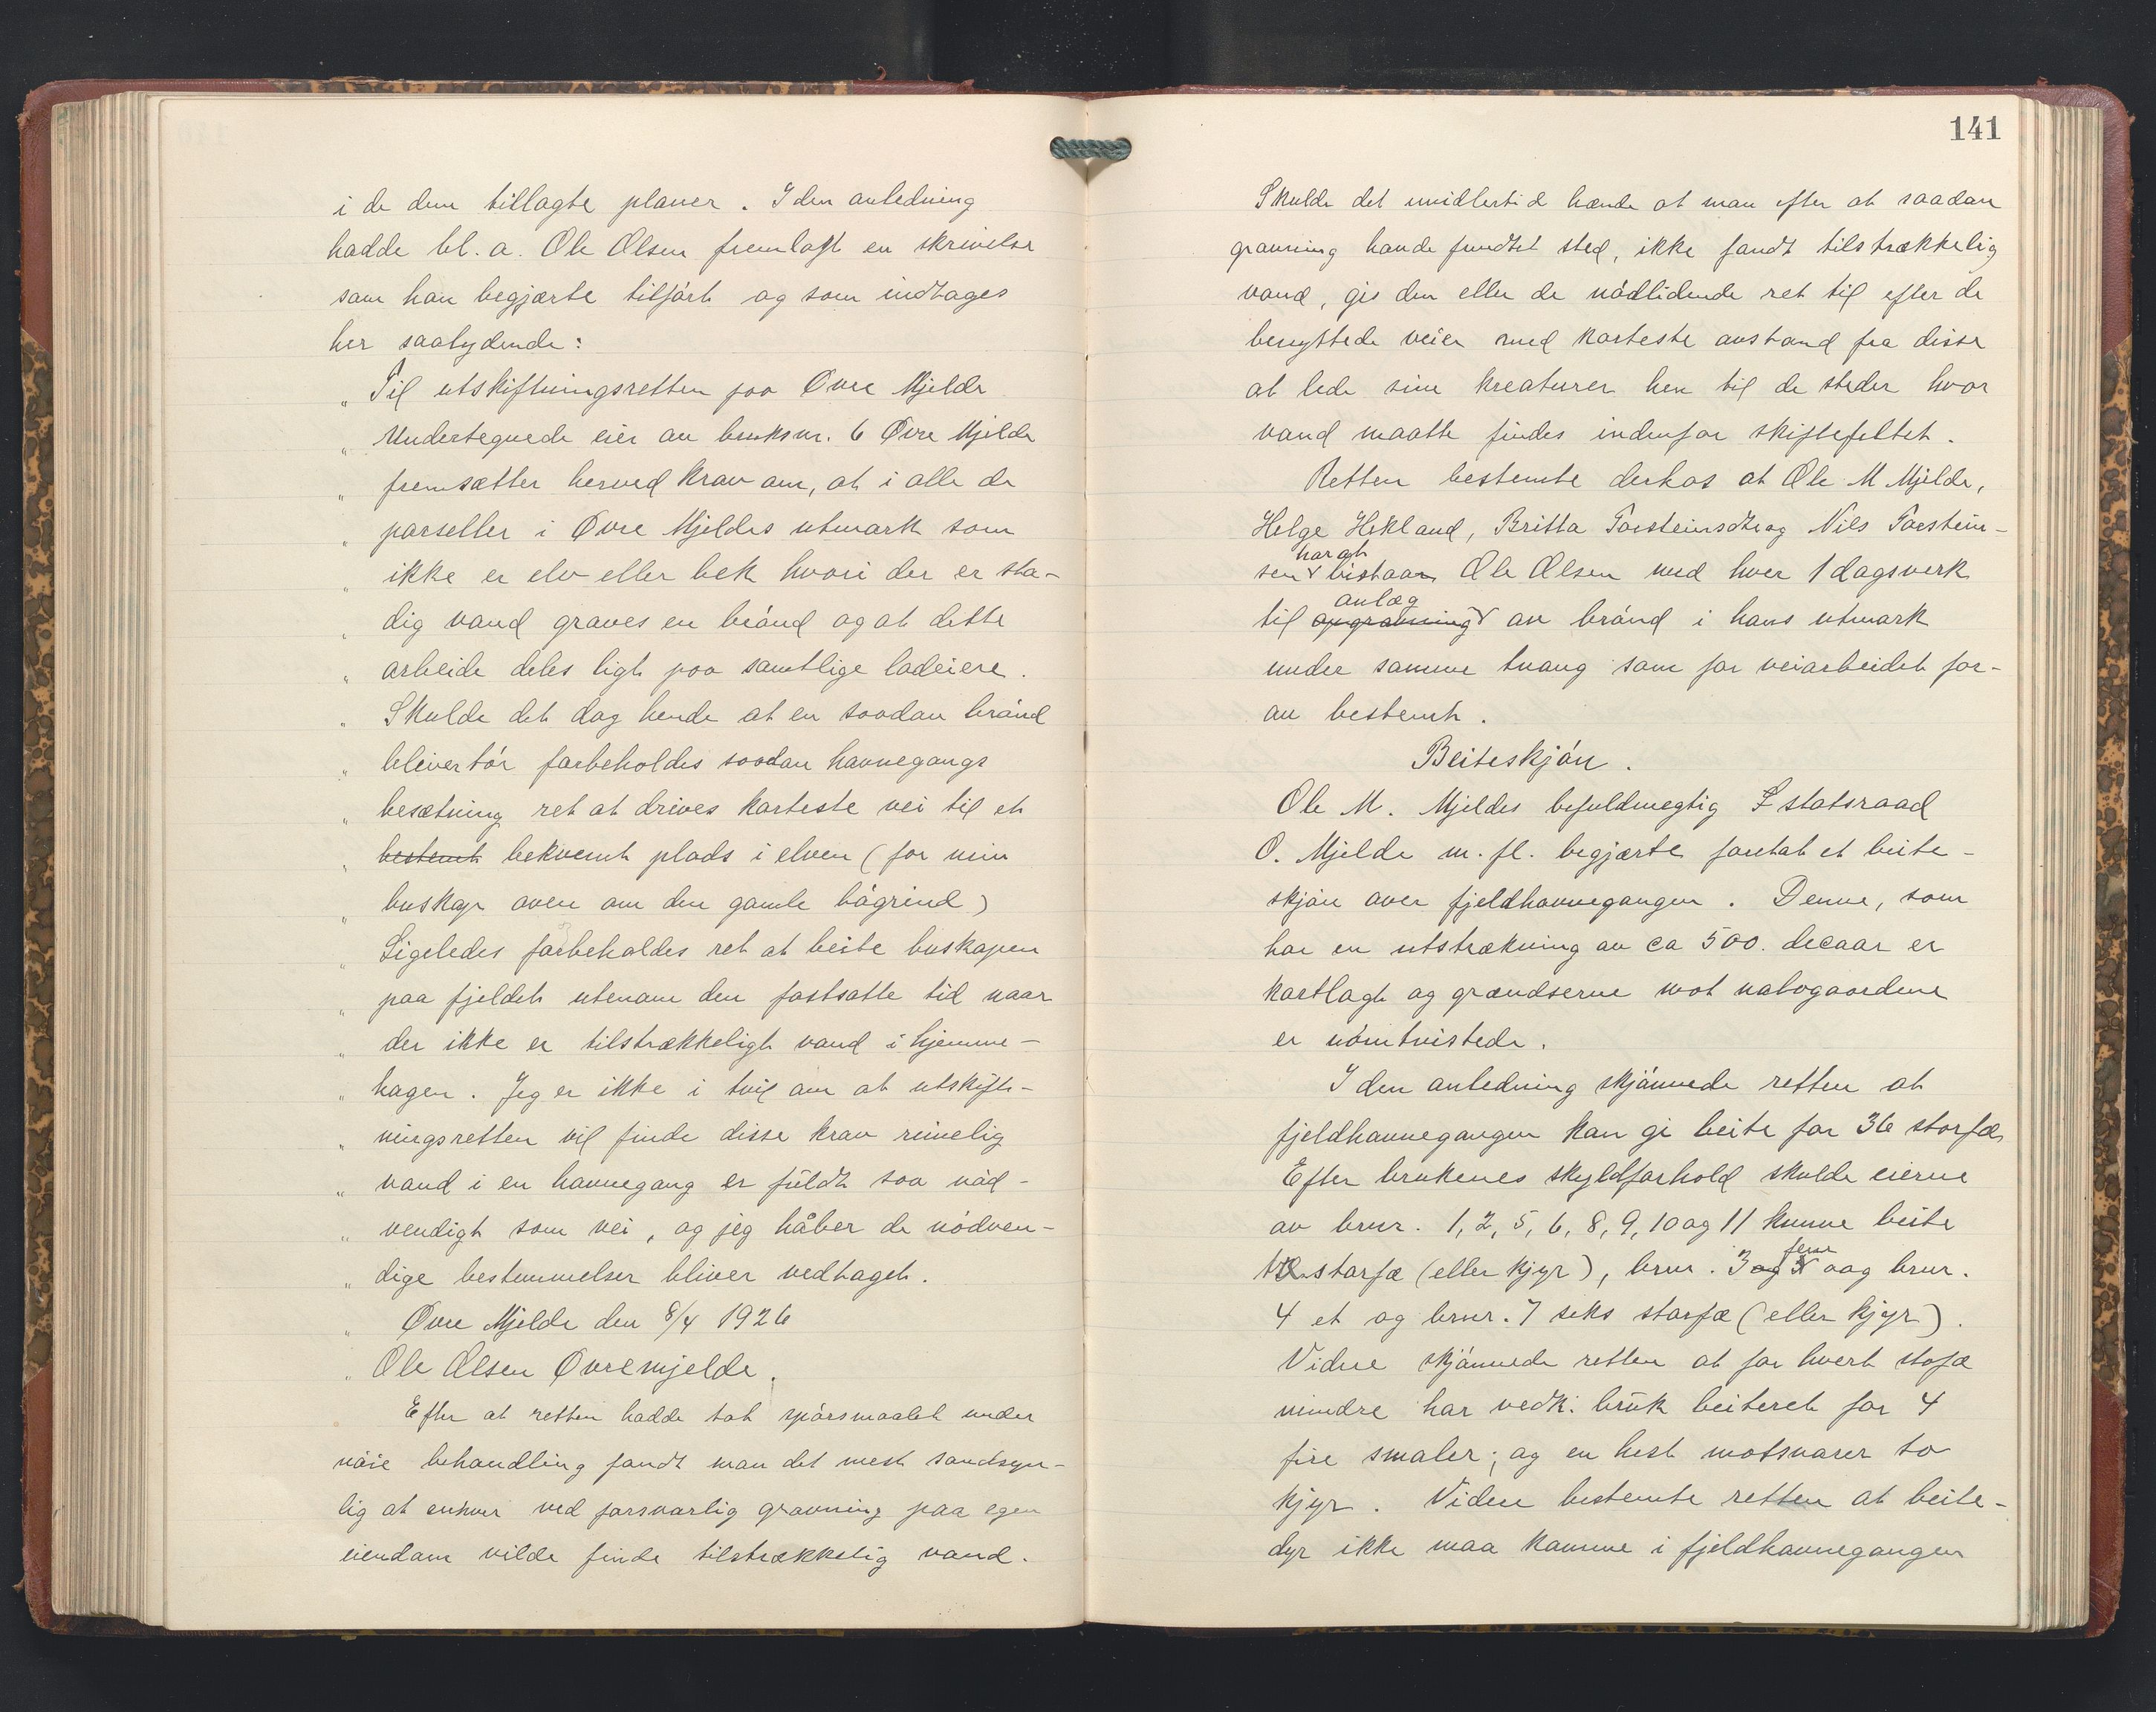 i de dem tillagte planer. I den anledning
hadde bl. a. Ole Olsen fremlagt en skrivelse
som han begjærte tilført og som indtages
her saalydende:
„ Til utskiftningsretten paa Øvre Mjelde
„ Undertegnede eier av bruksnr. 6 Øvre Mjelde
„ fremsætter herved krav om, at i alle de
„ parseller i Øvre Mjeldes utmark som
„ ikke er elv eller bek hvori der er sta-
„ dig vand graves en brønd og at dette
„ arbeide deles ligt paa samtlige lodeiere.
„ Skulde det dog hende at en saadan brønd
„ bliver tør forbeholdes saadan havnegangs
„ besætning ret at drives korteste vei til et
„ bestemt bekvemt plads i elven (for min
„ buskap oven om den gamle bøgrind)
„ Ligeledes forbeholdes ret at beite buskapen
„ paa fjeldet utenom den fastsatte tid naar
„ der ikke er tilstrækkeligt vand i hjemme-
„ hagen. Jeg er ikke i tvil om at utskift-
„ ningsretten vil finde disse krav rimelig
„ vand i en havnegang er fuldt saa nød-
„ vendigt som vei, og jeg håber de nødven-
„ dige bestemmelser bliver vedtaget.
„ Øvre Mjelde den 8/4 1926
„ Ole Olsen Øvremjelde.
Efter at retten hadde tat spørsmaalet under
nøie behandling fandt man det mest sandsyn-
lig at enhver ved forsvarlig gravning paa egen
eiendom vilde finde tilstrækkelig vand.
141
Skulde det imidlertid hænde at man efter at saadan
gravning havde fundet sted, ikke fandt tilstrækkelig
vand, gis den eller de nødlidende ret til efter de
benyttede veier med korteste avstand fra disse
at lede sine kreaturer hen til de steder hvor
vand maatte findes indenfor skiftefeltet.
Retten bestemte derhos at Ole M Mjelde,
Helge Hekland, Britta Torsteinsdtr og Nils Torstein-
har at
sen bistaa Ole Olsen med hver 1 dagsverk
anlæg
til opgravning av brønd i hans utmark
under samme tvang som for veiarbeidet for-
an bestemt.
Beiteskjøn.
Ole M. Mjeldes befuldmegtig F statsraad
O. Mjelde m. fl. begjærte foretat et beite-
skjøn over fjeldhavnegangen. Denne, som
har en utstrækning av ca 500. decaar er
kartlagt og grændserne mot nabogaardene
er uomtvistede.
I den anledning skjønnede retten at
fjeldhavnegangen kan gi beite for 36 storfæ,
Efter brukenes skyldforhold skulde eierne
av brnr. 1, 2, 5, 6, 8, 9, 10 og 11 kunne beite
fem
tre storfæ (eller kjyr), brnr. 3 og 3 og brnr.
4 et og brnr. 7 seks storfæ (eller kjyr).
Videre skjønnede retten at for hvert stofæ
mindre har vedk. bruk beiteret for 4
fire smaler; og en hest motsvarer to
kjyr. Videre bestemte retten at beite-
dyr ikke maa komme i fjeldhavnegangen